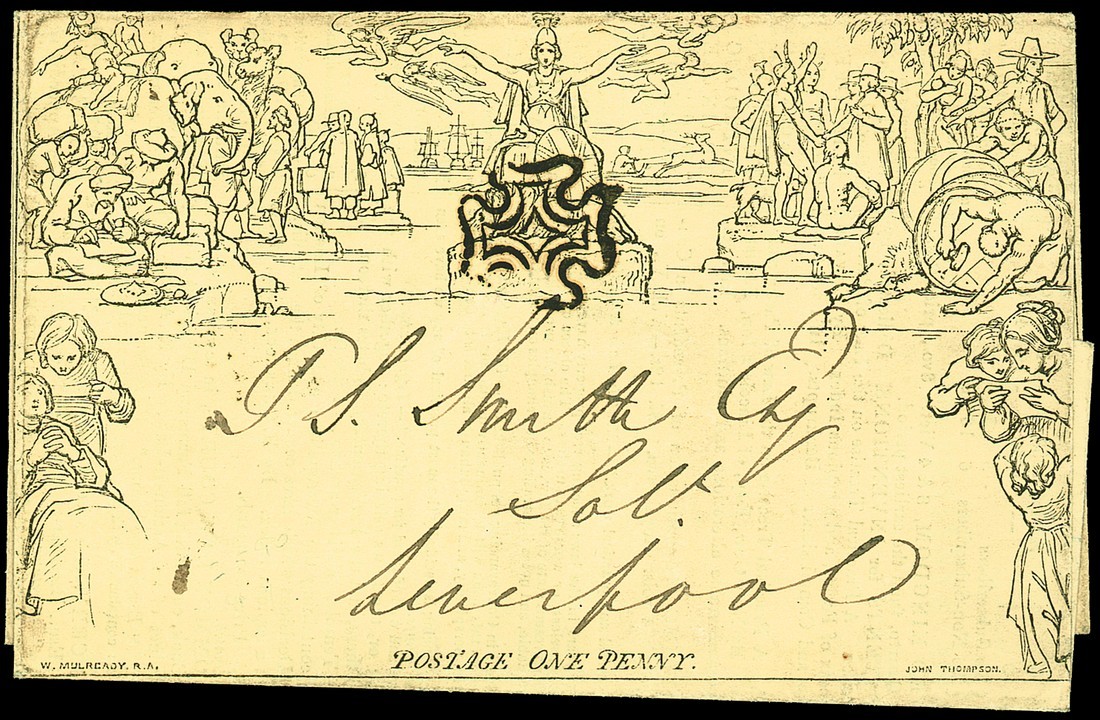 P. S. Smith Esq
Solr.
Liverpool
POSTAGE ONE PENNY.
W. MULREADY, R.A.
JOHN THOMPSON.